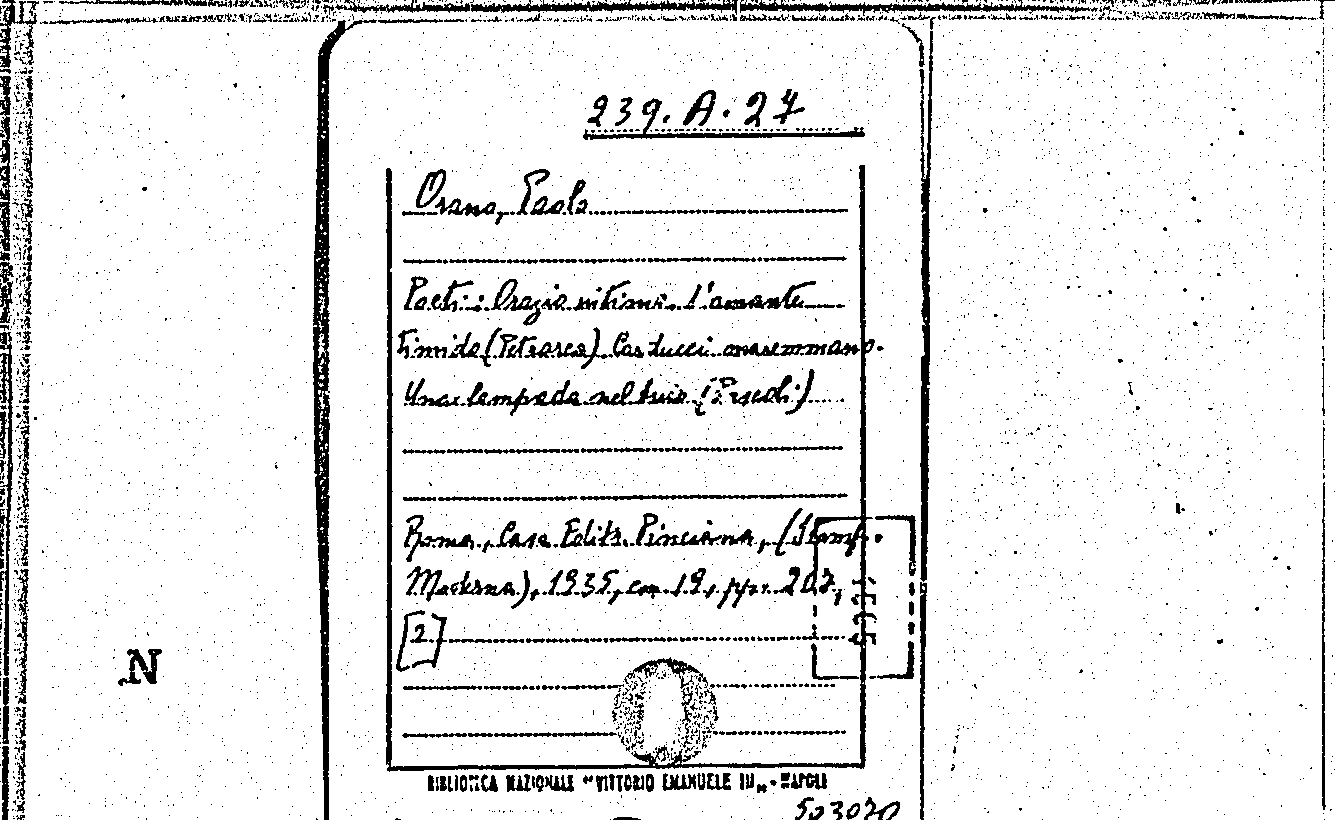 239. A. 27
Orano, Paolo
Poeti: Orazio intimo. L'amante
timido (Petrarca) Carducci maremmano.
Una lampada nel buio (Pascoli)
Roma, Casa Edit. Pinciana, (Stamp.
Moderna), 1935, cm. 19, pp. 207,
[2]
N.
BIBLIOTECA NAZIONALE "VITTORIO EMANUELE III" - NAPOLI
503070